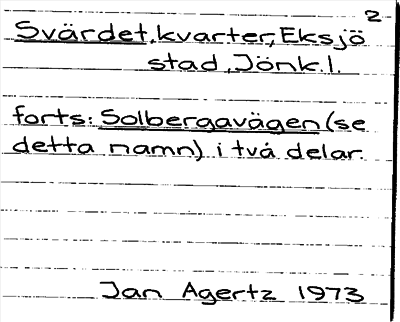 2
Svärdet, kvarter, Eksjö
stad, Jönk.l.
forts: Solbergavägen (se
detta namn) i två delar.
Jan Agertz 1973